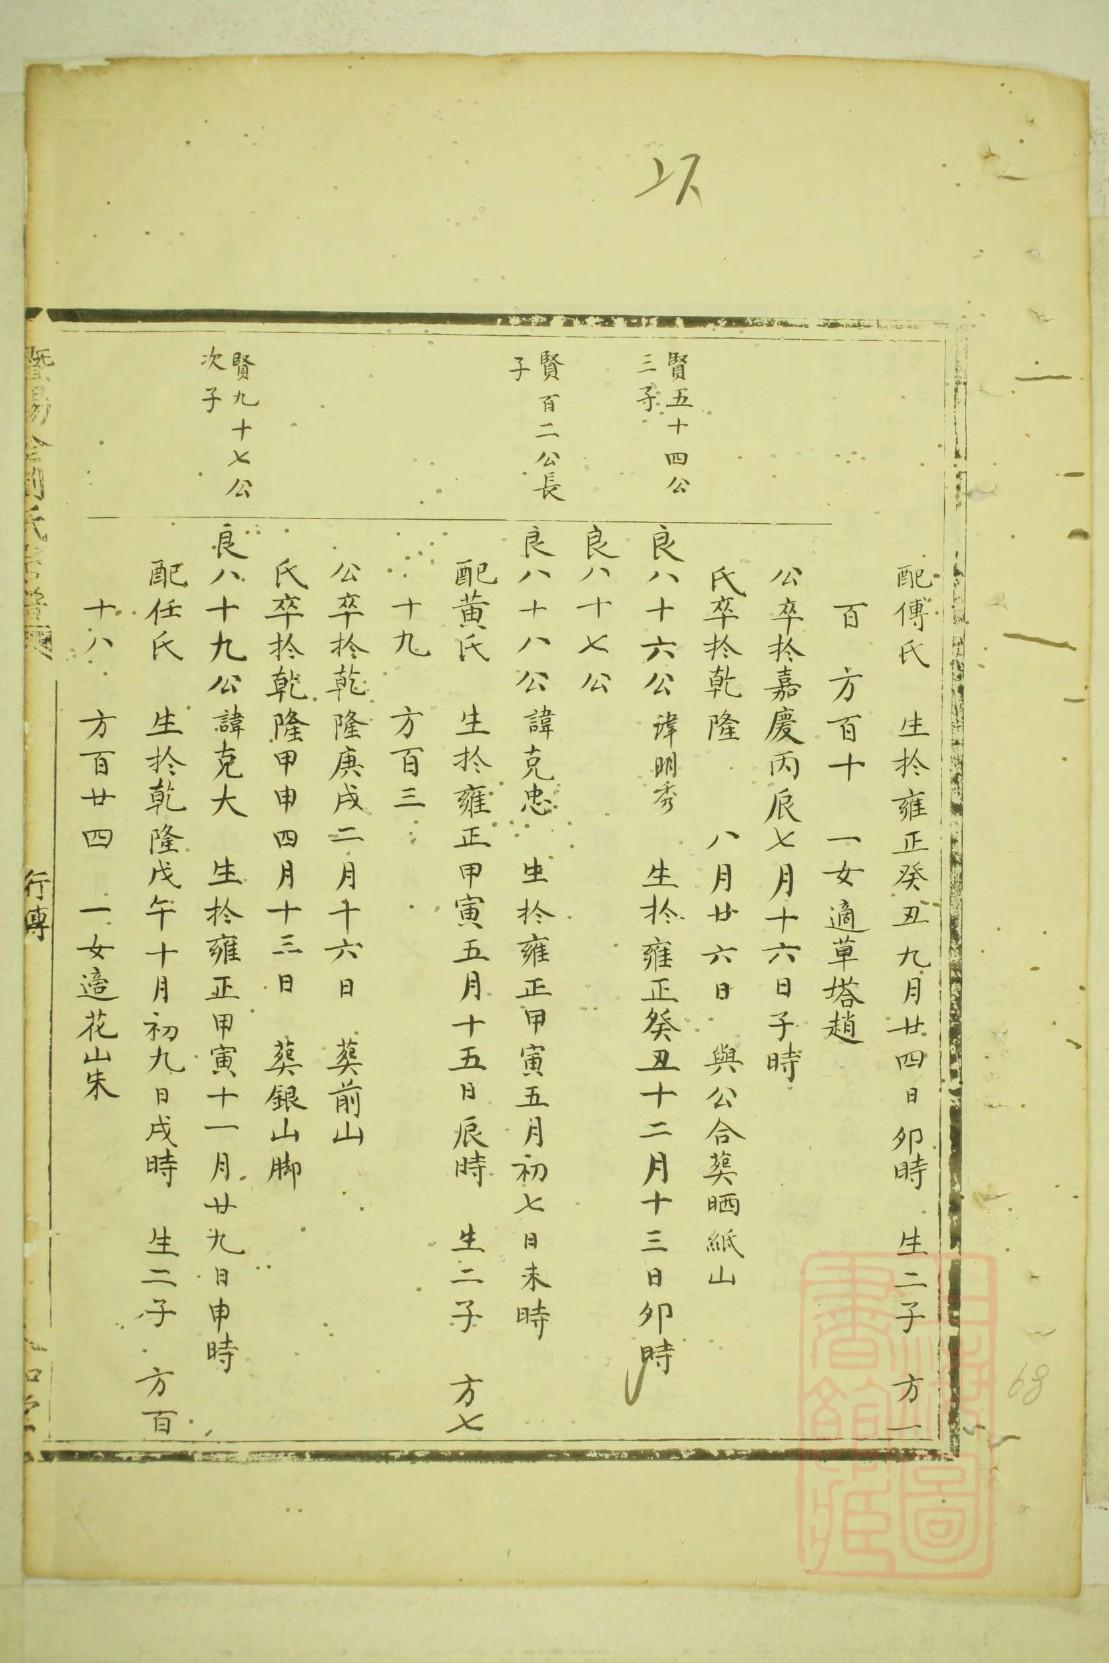 配傅氏 生於雍正癸丑九月廿四日卯時 生二子 方一
百 方百十 一女適草塔趙
公卒於嘉慶丙辰七月十六日子時
氏卒於乾隆 八月廿六日 與公合葬晒紙山
賢五十四公
三子
良八十六公諱明秀 生於雍正癸丑十二月十三日卯時
良八十七公
賢百二公長
子
良八十八公諱克忠 生於雍正甲寅五月初七日未時
配黃氏 生於雍正甲寅五月十五日辰時 生二子 方七
十九 方百三
公卒於乾隆庚戌二月十六日 葬前山
氏卒於乾隆甲申四月十三日 葬銀山脚
賢九十七公
次子
良八十九公諱克大 生於雍正甲寅十一月廿九日申時
配任氏 生於乾隆戊午十月初九日戌時 生二子 方百
十八 方百廿四 一女適花山朱
行傳
68